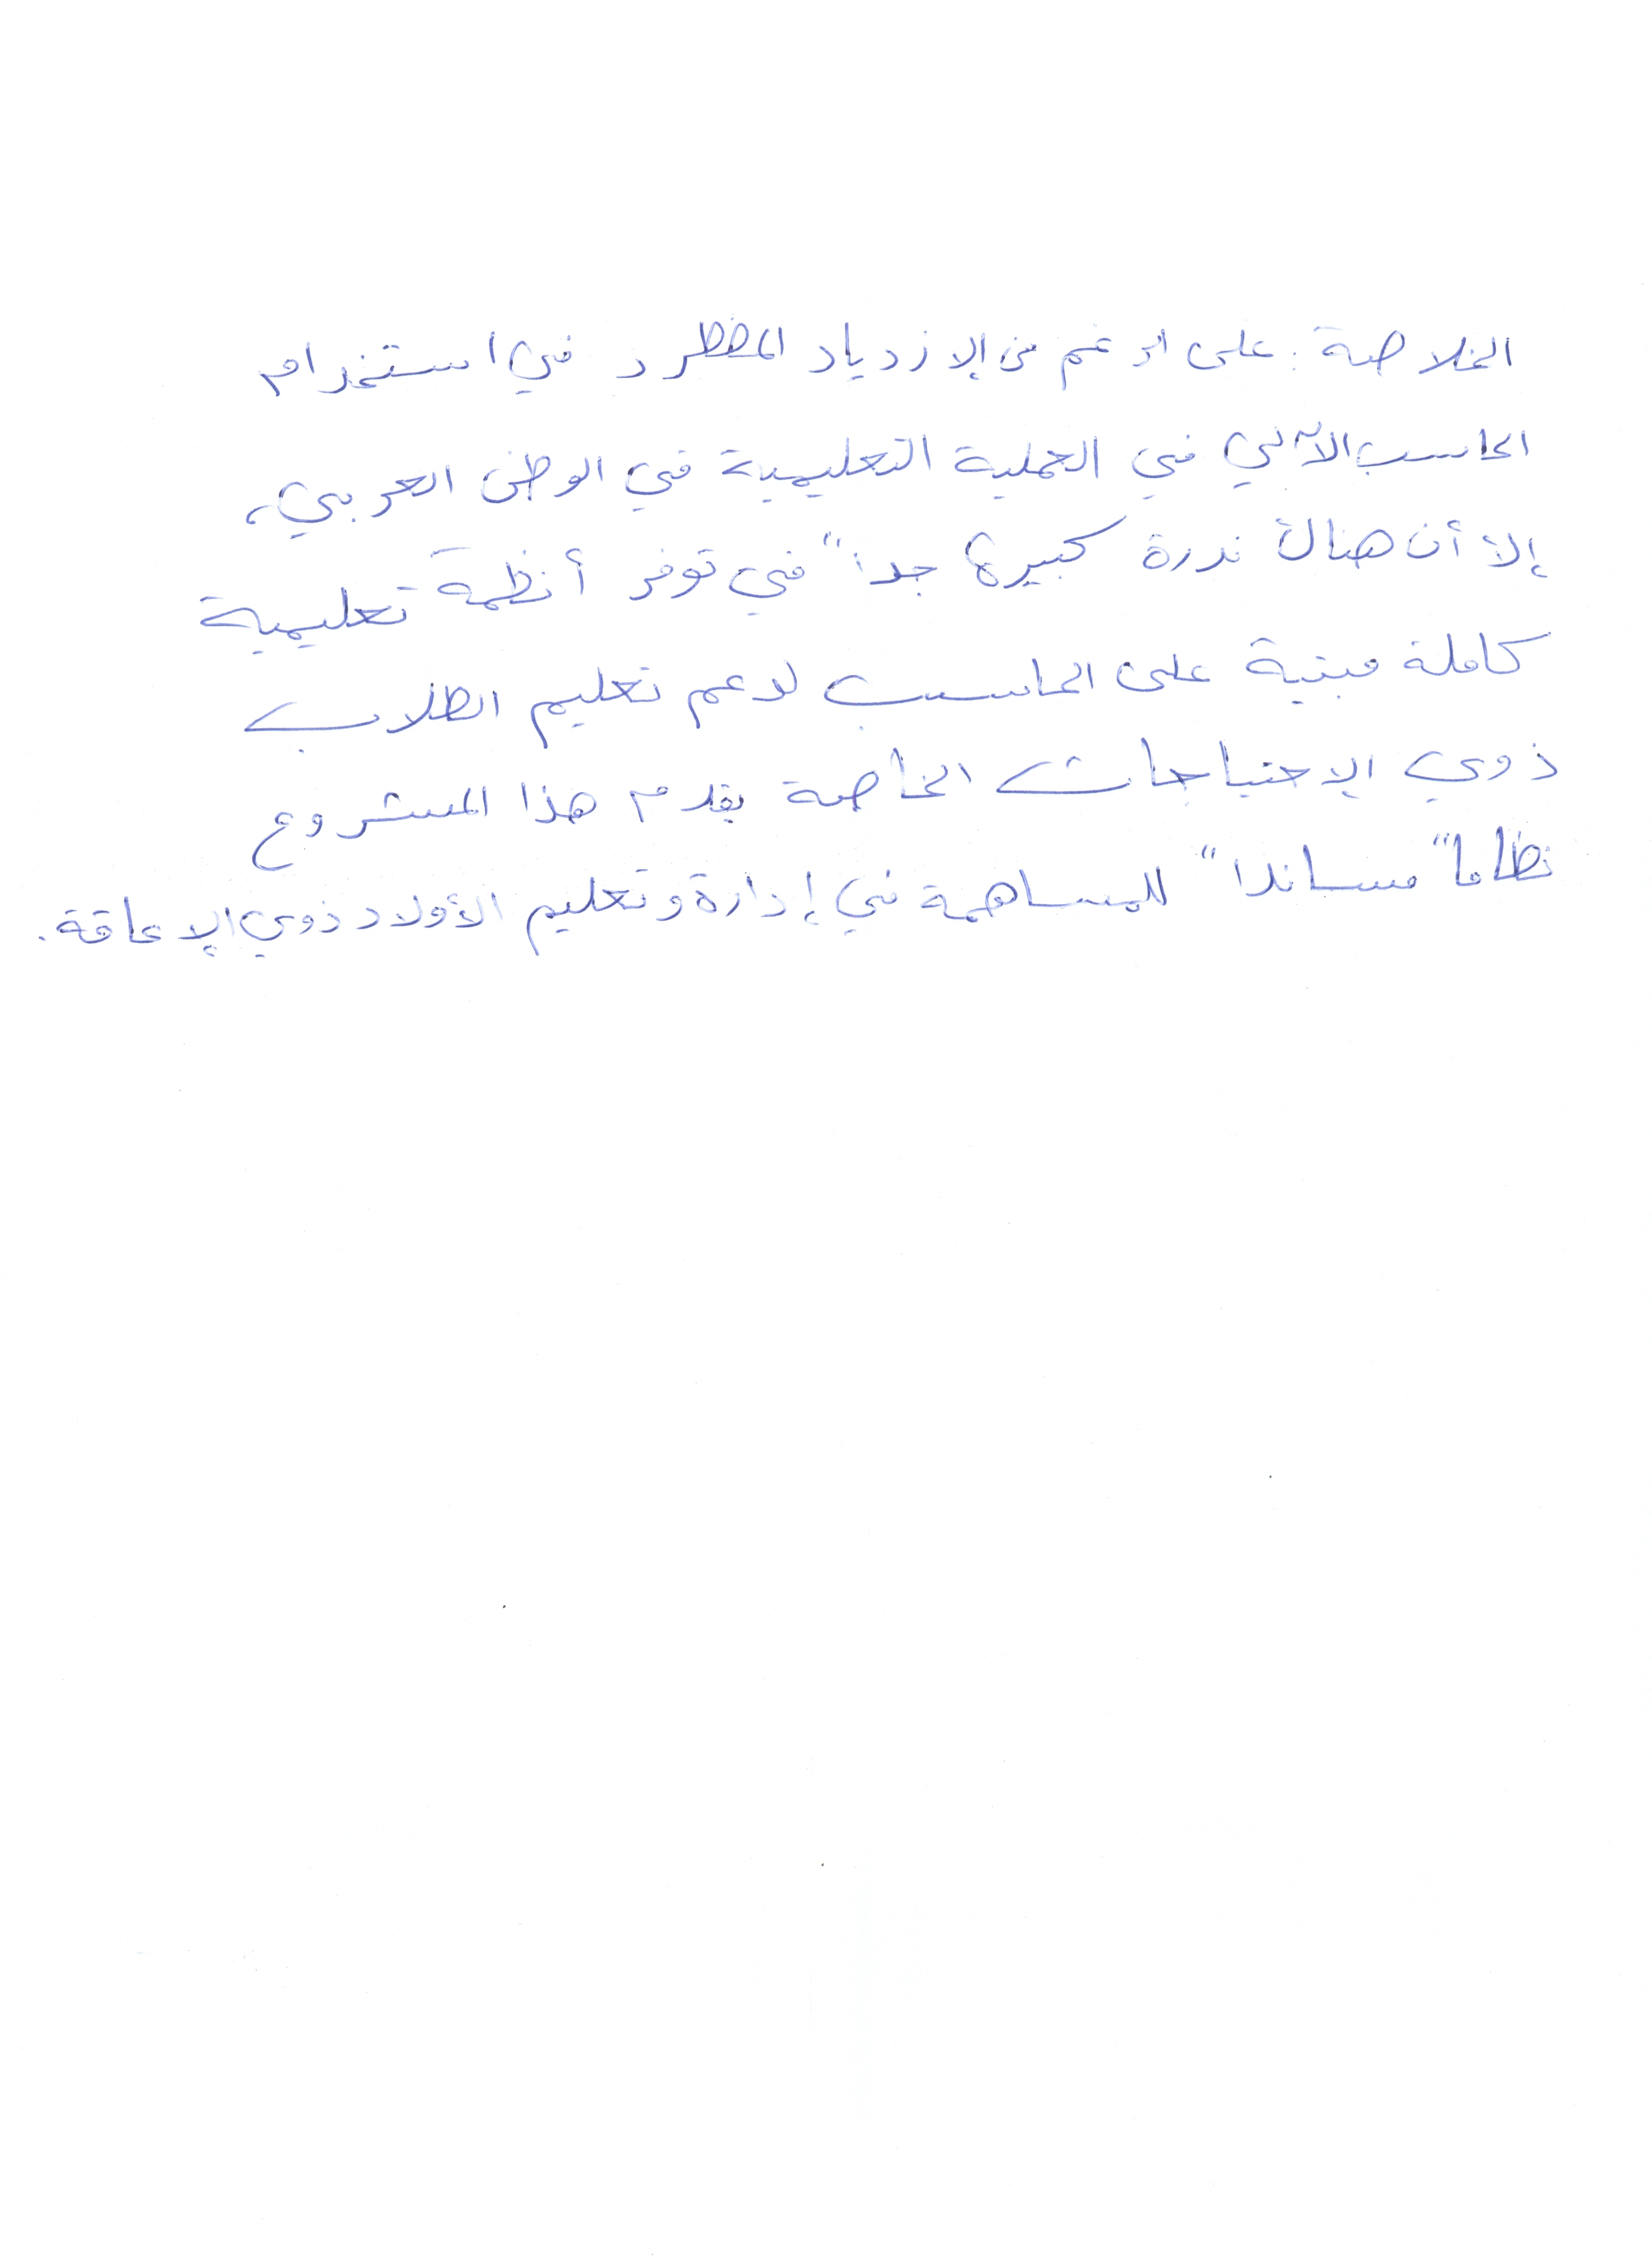 الخلاصة: على الرغم من الإزدياد المضطرد في استخدام
الحاسب الآلي في العملية التعليمية في الوطن العربي،
إلا أن هناك ندرة كبيرة جداً في توفر أنظمة تعليمية
كاملة مبنية على الحاسب لدعم تعليم الطلاب
ذوي الإحتياجات الخاصة يقدم هذا المشروع
نظاماً مسانداً للمساهمة في إدارة وتعليم الأولاد ذوي الإعاقة.